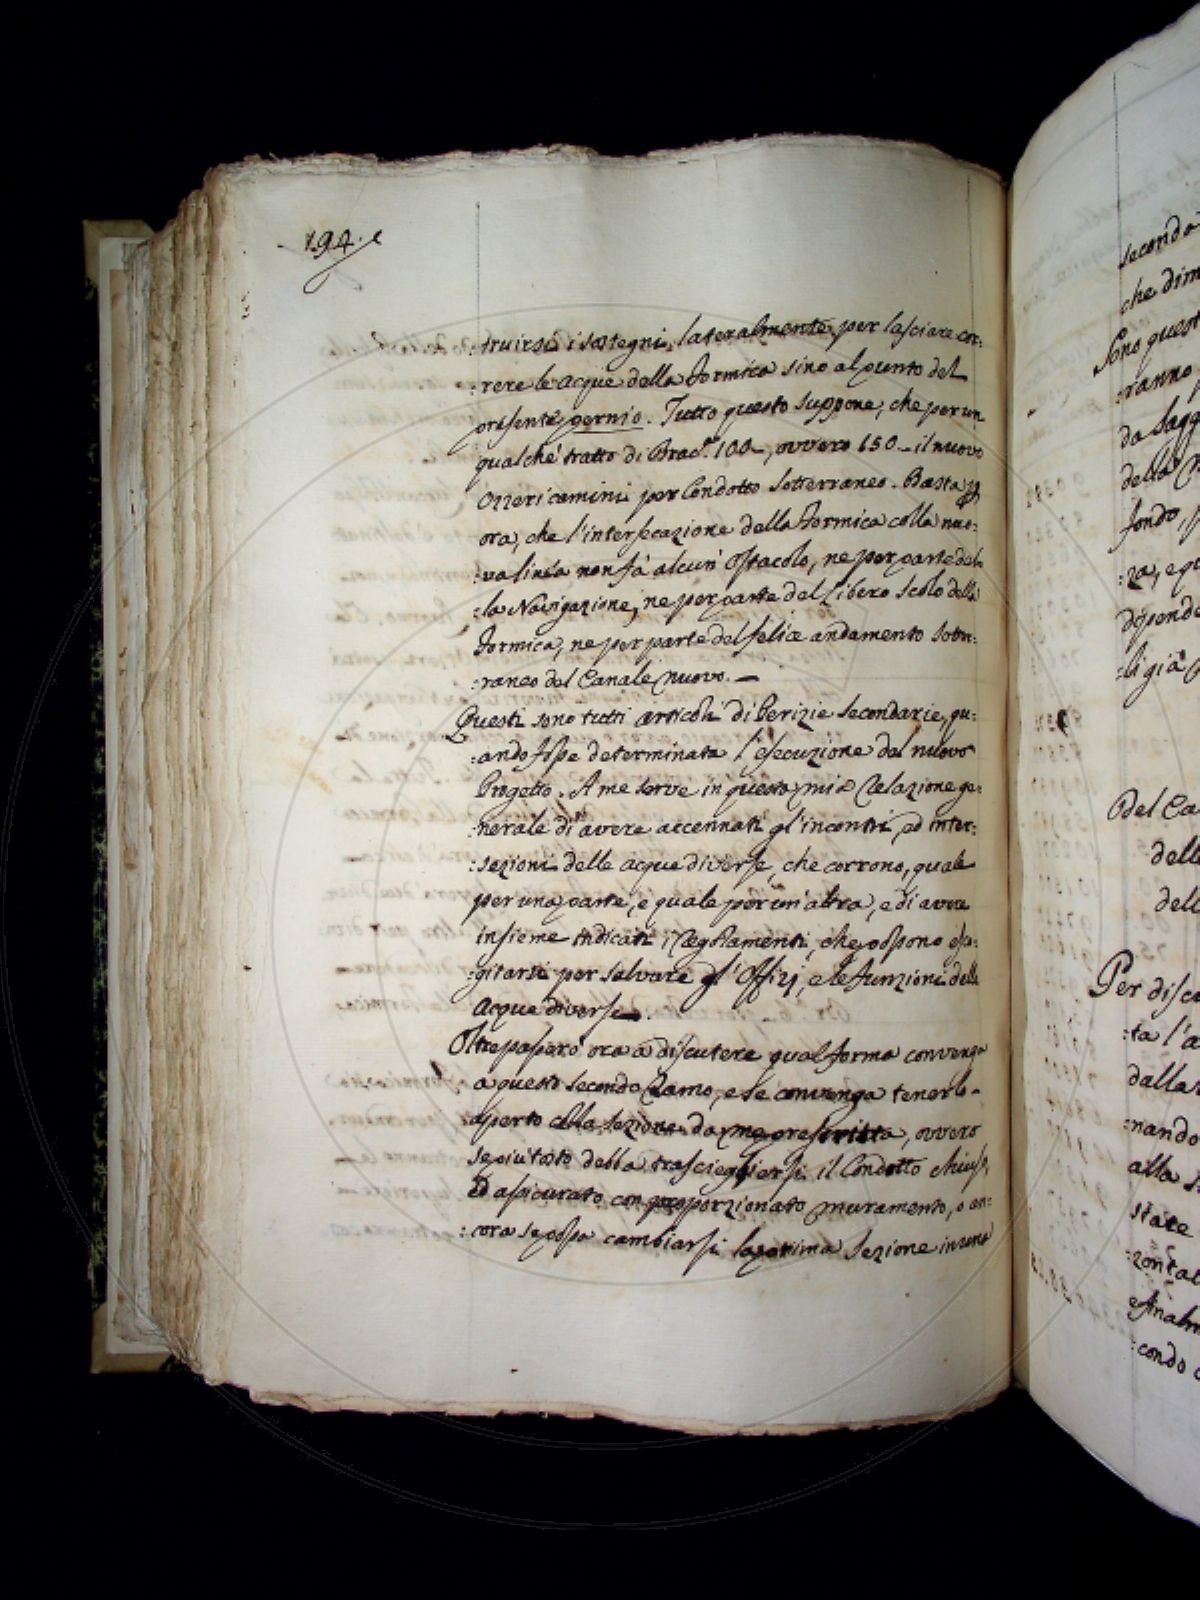 194.
:truirsi i sostegni, lateralmente, per lasciare cor:
:rere le acque della Formica sino al punto del
presente pernio. Tutto questo suppone, che per un
qualche tratto di Brac.ª 100_, ovvero 150_ il nuovo
Ozzeri camini per Condotto sotterraneo. Basta p
ora, che l'intersecazione della Formica colla nuo:
:va linea non fà alcun' Ostacolo, ne per parte del:
:la Navigazione, ne per parte del Libero Scolo della
Formica, ne per parte del felice andamento sotter:
:raneo del Canale nuovo._
Questi sono tutti articoli di Perizie secondarie, qu:
:ando fosse determinata l'esecuzione del nuovo
Progetto. A me serve in questa mia Relazione ge:
:nerale di avere accennati gl'incontri, ed inter:
:sezioni delle acque diverse, che corrono, quale
per una parte, e quale per un'altra, e di avere
insieme indicati i Regolamenti, che possono esco:
:gitarsi per salvare gl'Offizj, e le funzioni delle
acque diverse_.
Oltrepasserò ora à discutere qual forma convenga
a questo secondo Ramo, e se convenga tenerlo
aperto colla sezione da me prescritta, ovvero
se piutosto debba trasciegliersi il Condotto chiuso,
ed assicurato con proporzionato muramento, o an:
:cora se possa cambiarsi la prima Sezione in una
secondo
che dim
Sono quest
:ranno
da Sagg
della
fondo
:za, e qu
dipende
:li già
Del Ca
delle
dell
Per discu
:ta l'a
dalla
:nando
alla
state
:zontal
e finalm
:condo